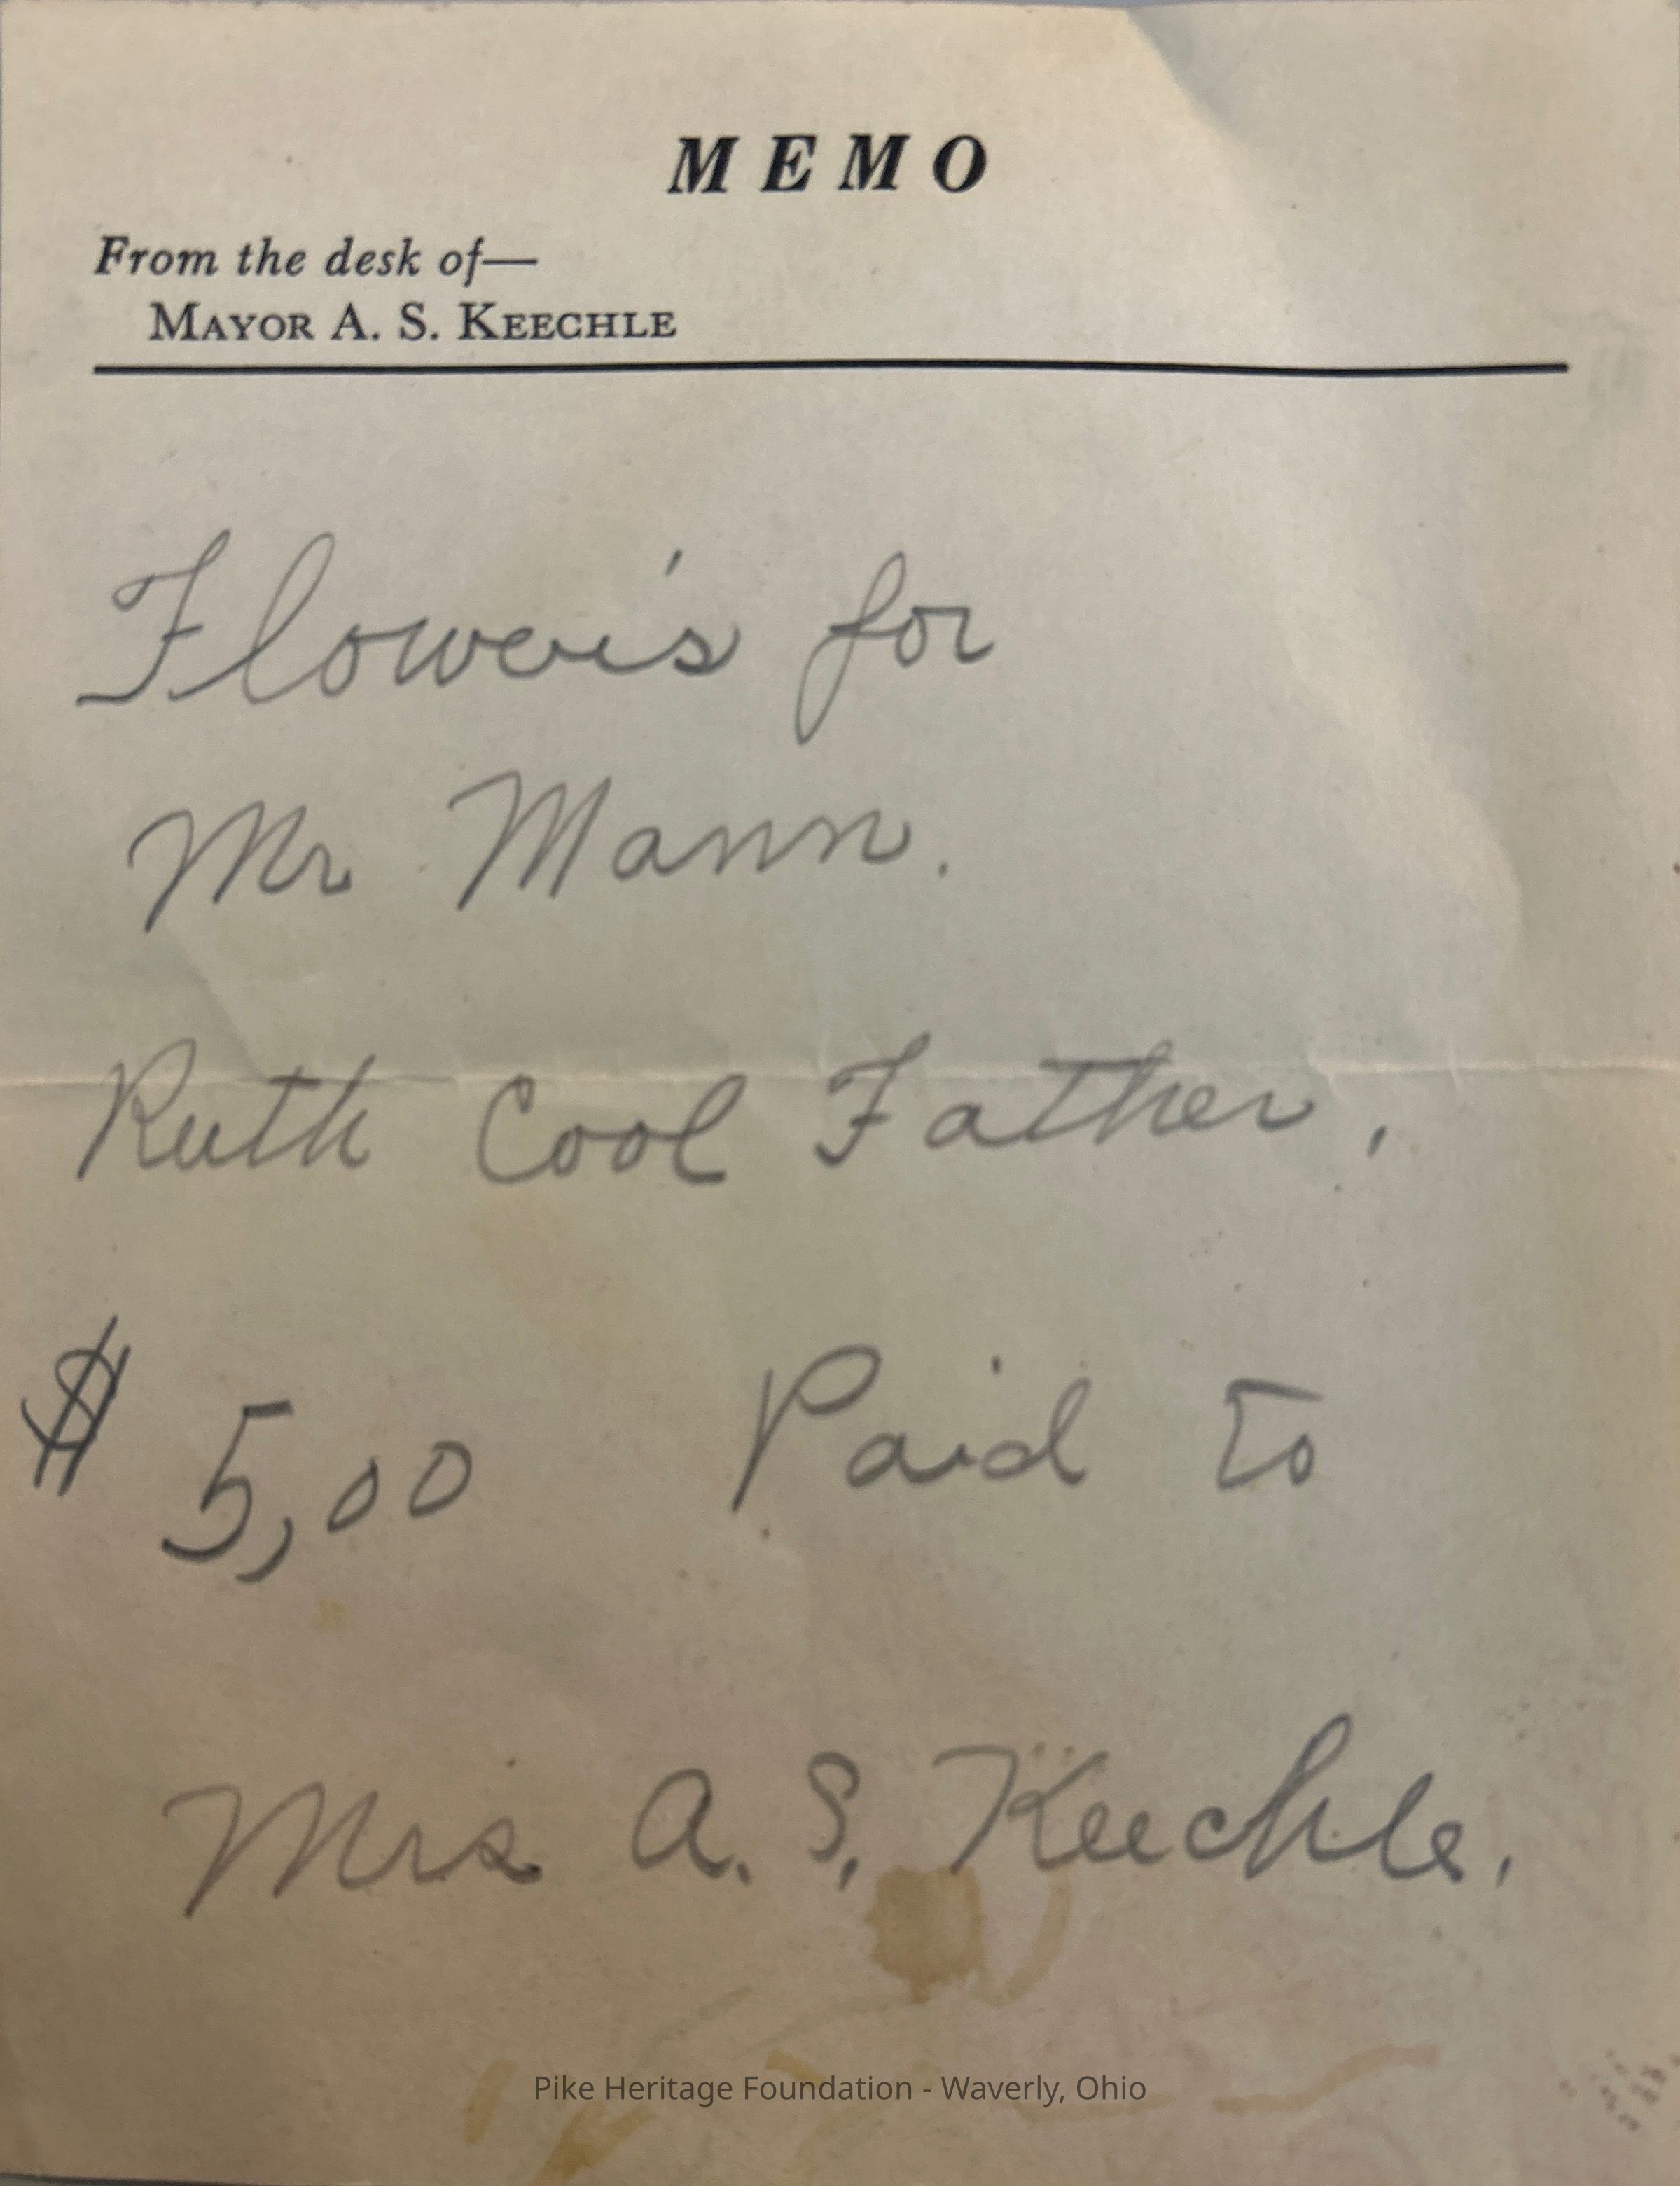 MEMO
From the desk of—
MAYOR A. S. KEECHLE
Flower's for
Mr Mann.
Ruth Cool Father,
$ 5,00 Paid to
Mrs A. S. Keechle.
Pike Heritage Foundation - Waverly, Ohio